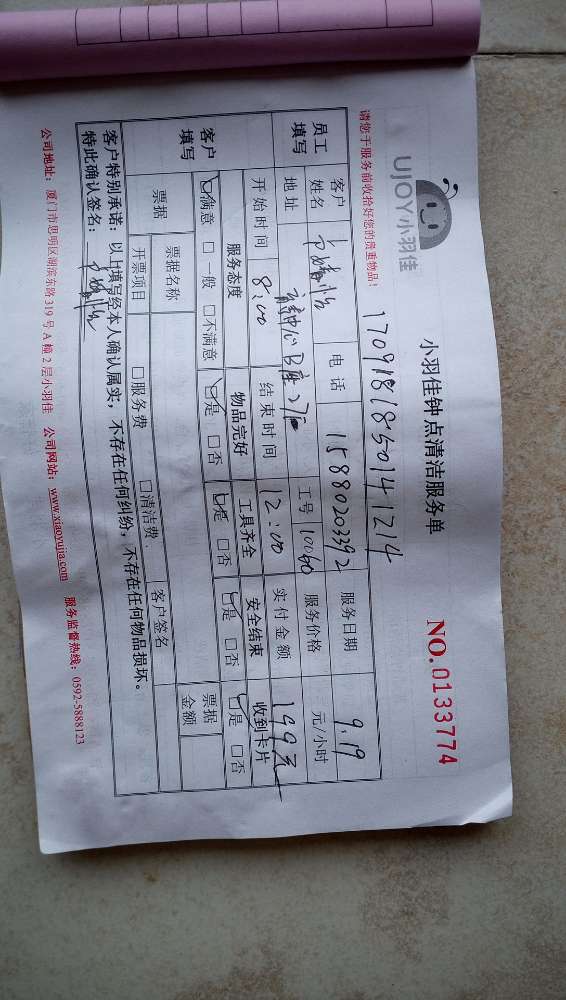 UJOY小羽佳
小羽佳钟点清洁服务单
NO.0133774
请您于服务前收拾好您的贵重物品!
170918185014 1214
员工填写
客户姓名
电话 15880203392
服务日期 9.19
地址 B座
工号 10040
服务价格 元/小时
开始时间 8:00
结束时间 12:00
实付金额 199元
客户填写
服务态度 物品完好 工具齐全 安全结束 收到卡片
☑满意 □一般 □不满意 ☑是 □否 ☑是 □否 ☑是 □否 ☑是 □否
票据 票据名称 客户签名 票据金额
开票项目 □服务费 □清洁费
客户特别承诺:以上填写经本人确认属实,不存在任何纠纷,不存在任何物品损坏。
特此确认签名:
公司地址:厦门市思明区湖滨东路319号A幢2层小羽佳 公司网站:www.xiaoyujia.com 服务监督热线:0592-5888123